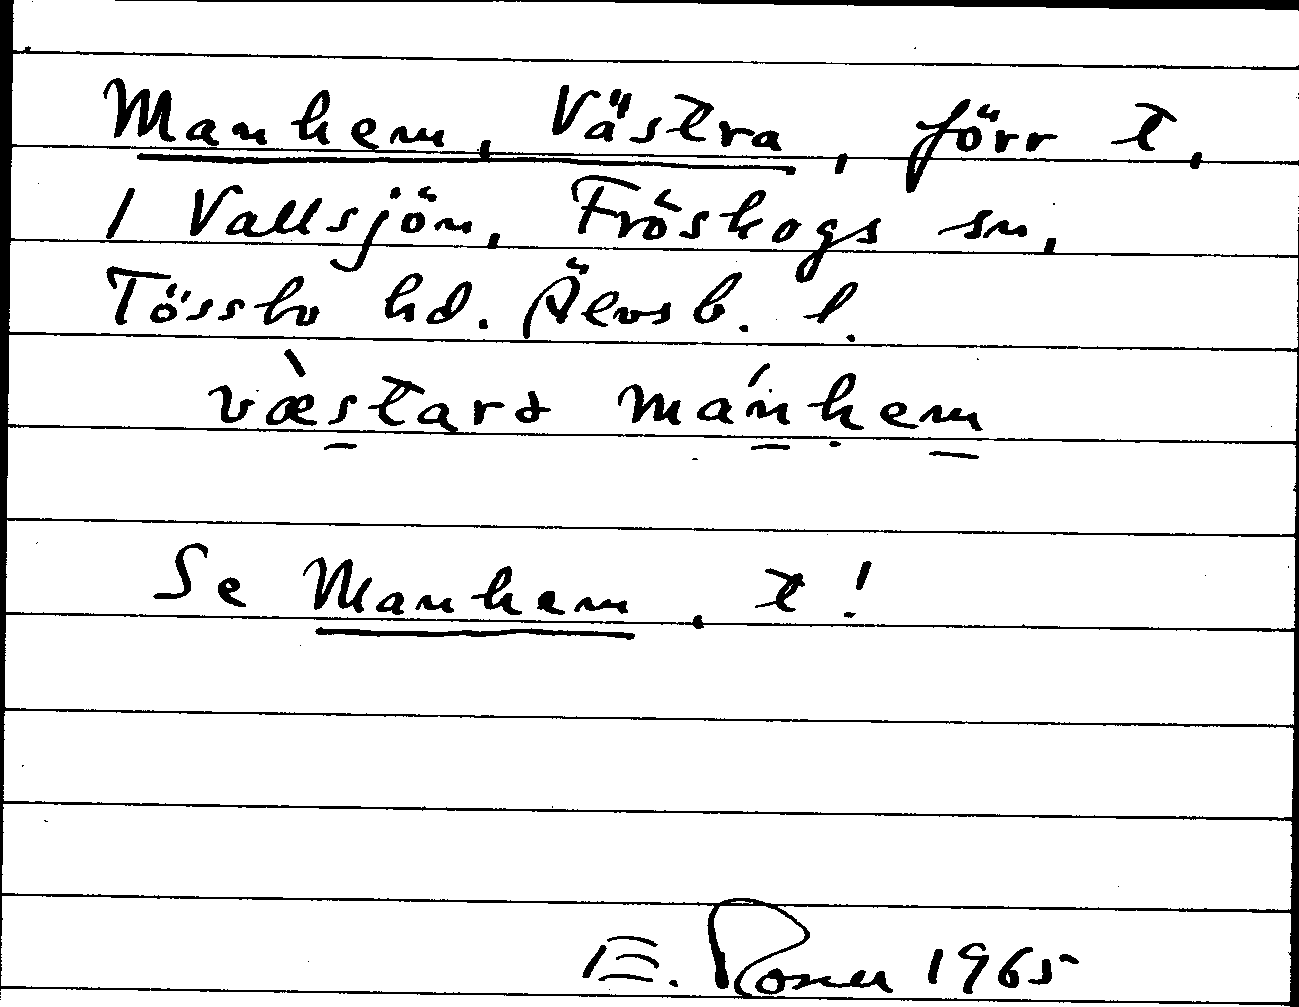 Manhem, Västra, förr t,
1 Vallsjön, Fröskogs sn,
Tössbo hd. Älvsb. l.
væ̀starə mánhem
Se Manhem, t!
E. Rosner 1965